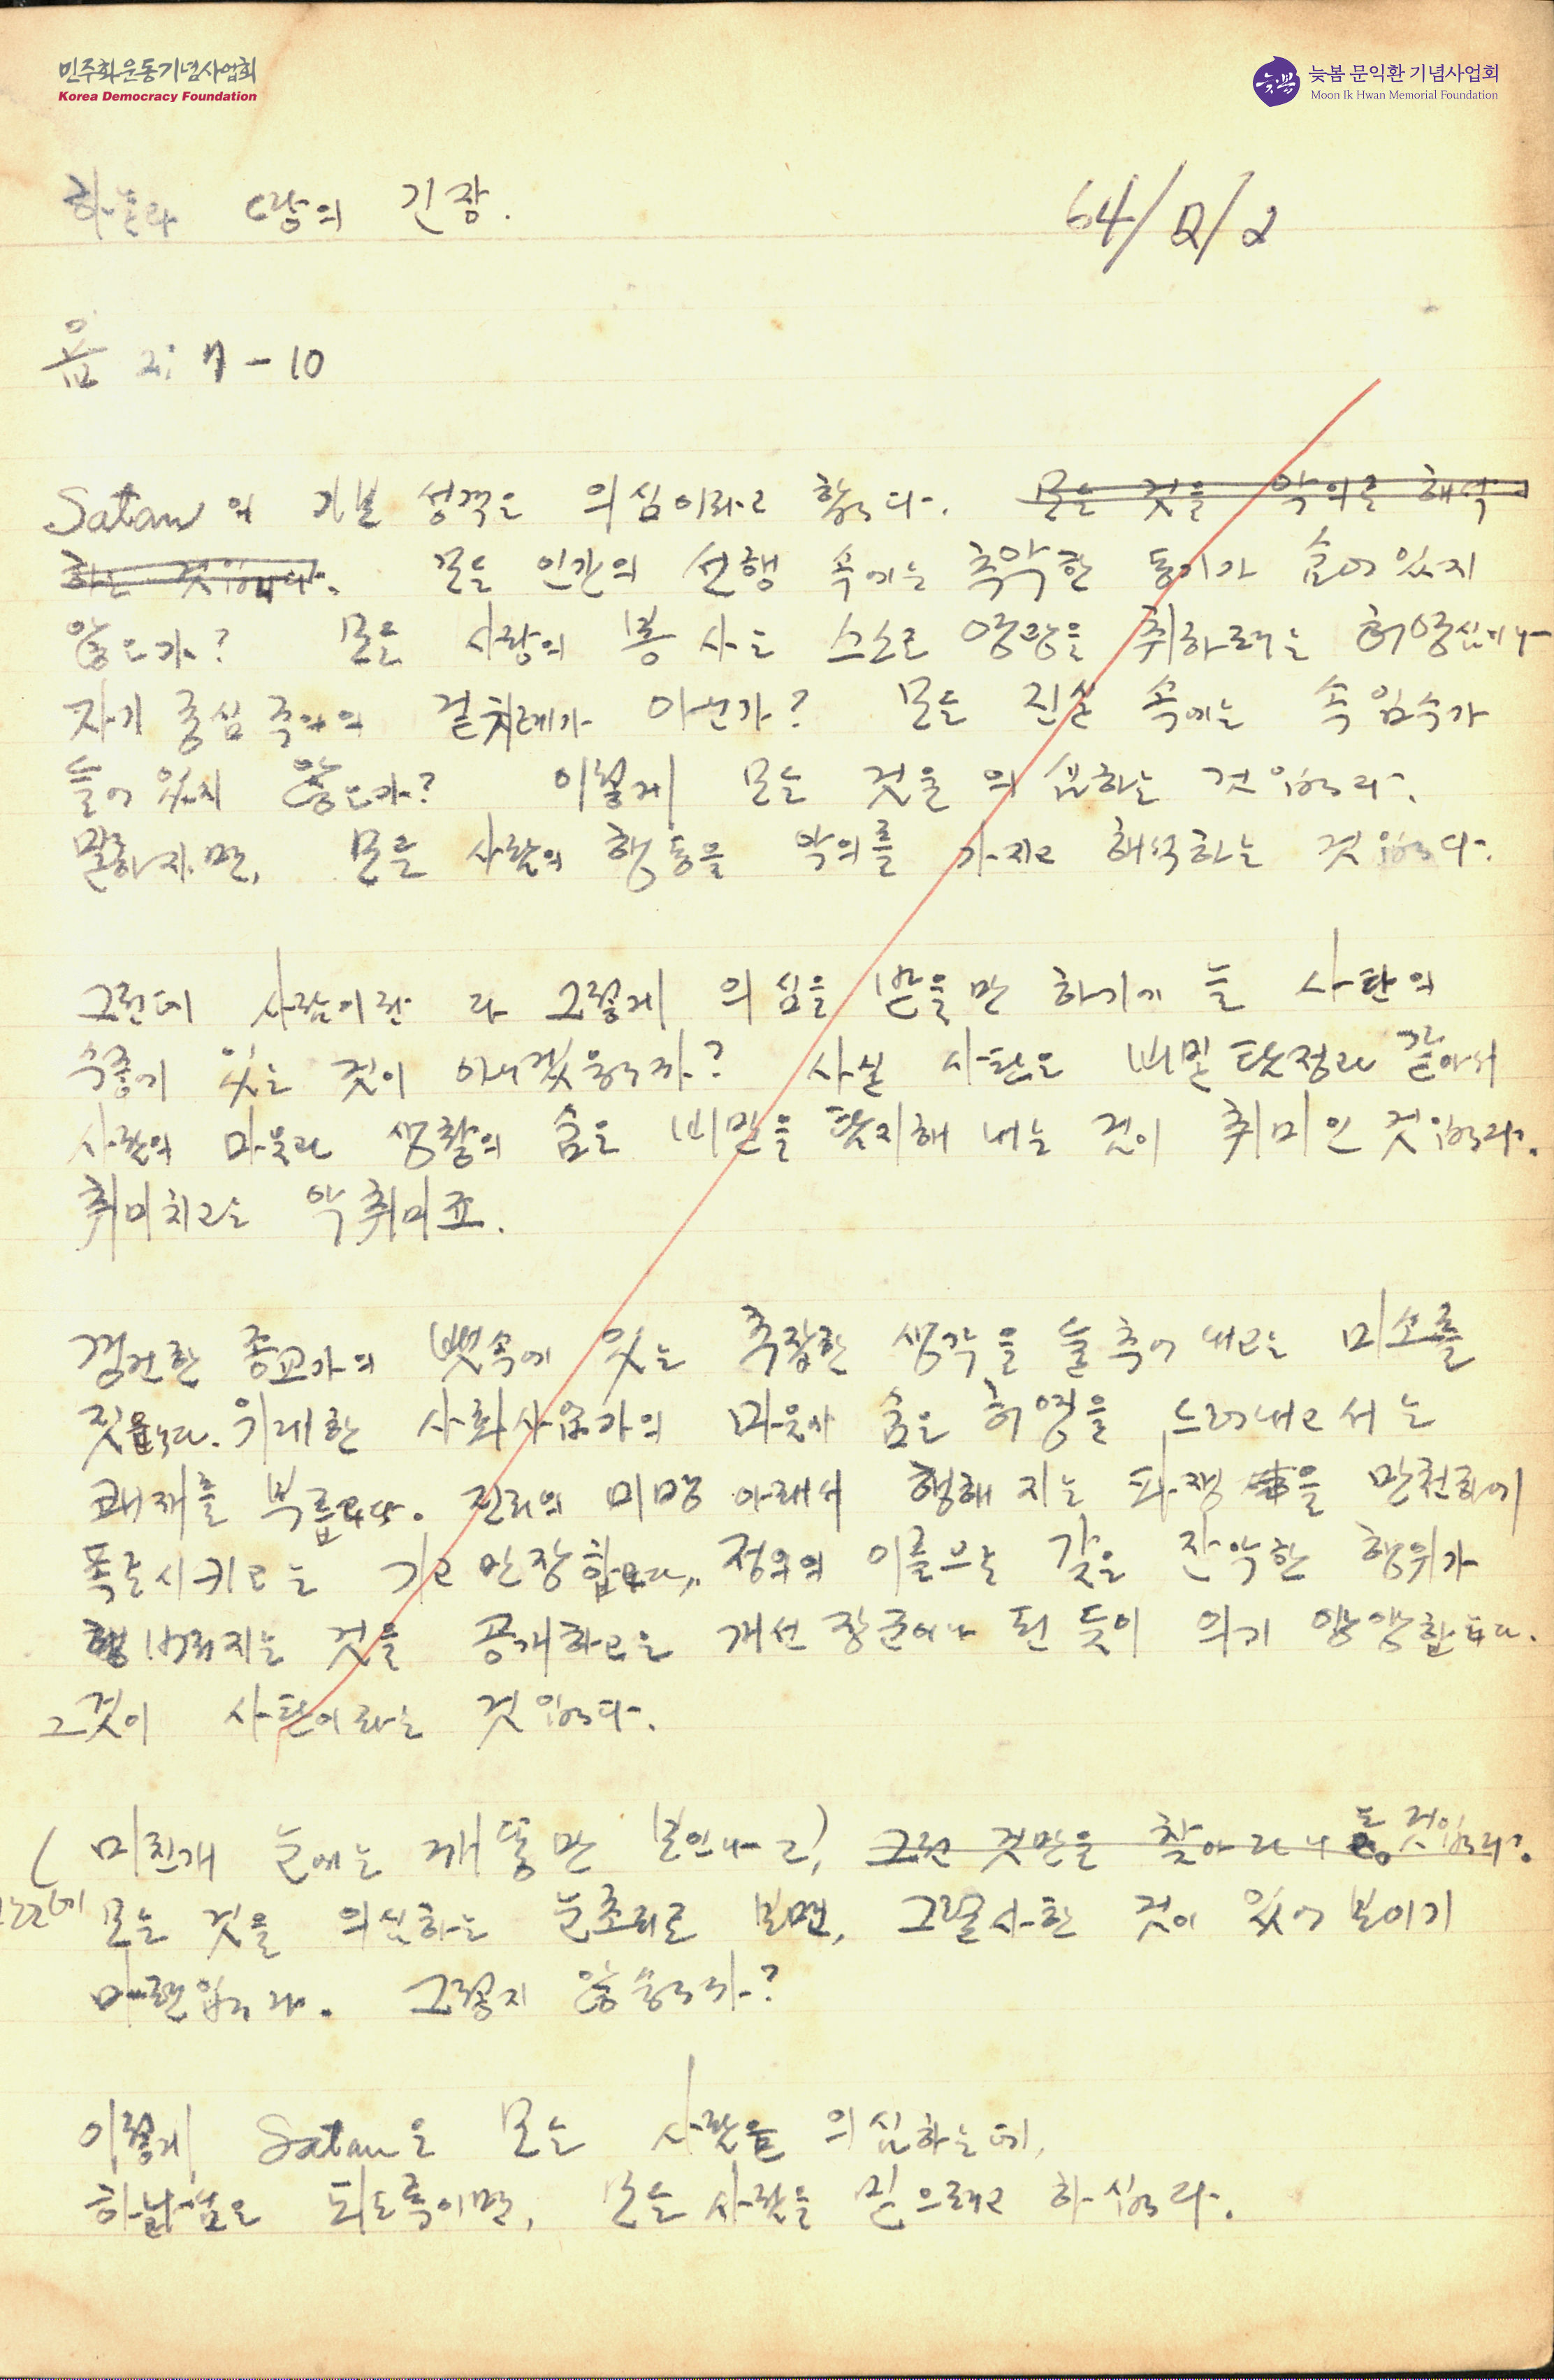 민주화운동기념사업회
Korea Democracy Foundation
늦봄
늦봄 문익환 기념사업회
Moon Ik Hwan Memorial Foundation
하늘과 땅의 긴장.
64/12/2
욥 2: 7-10
Satan의 기본 성격은 의심이라고 합니다. 모든 것을 악의로 해석
하는 것입니다. 모든 인간의 선행 속에는 추악한 동기가 숨어 있지
않은가? 모든 사랑의 봉사는 스스로 영광을 취하려는 허영심이나
자기 중심주의의 겉치레가 아닌가? 모든 진실 속에는 속임수가
들어 있지 않은가? 이렇게 모든 것을 의심하는 것입니다.
말하자면, 모든 사람의 행동을 악의를 가지고 해석하는 것입니다.
그런데 사람이란 다 그렇게 의심을 받을만 하기에 늘 사탄의
수중에 있는 것이 아니겠습니까? 사실 사탄은 비밀 탐정과 같아서
사람의 마음과 생활의 숨은 비밀을 탐지해 내는 것이 취미인 것입니다.
취미치고는 악취미죠.
경건한 종교가의 뱃속에 있는 추잡한 생각을 들추어 내고는 미소를
짓습니다. 위대한 사회사업가의 마음에 숨은 허영을 드러내고서는
쾌재를 부릅니다. 진리의 미명 아래서 행해지는 파쟁을 만천하에
폭로시키고는 기고만장합니다. 정의의 이름으로 갖은 잔악한 행위가
벌어지는 것을 공개하고는 개선장군이나 된 듯이 의기 양양합니다.
그것이 사탄이라는 것입니다.
(미친개 눈에는 개똥만 보인다고) 그런 것만을 찾아 다니는 것입니다.
모든 것을 의심하는 눈초리로 보면, 그럴사한 것이 있어 보이기
마련입니다. 그렇지 않습니까?
이렇게 Satan은 모든 사람을 의심하는데,
하나님은 되도록이면, 모든 사람을 믿으려고 하십니다.